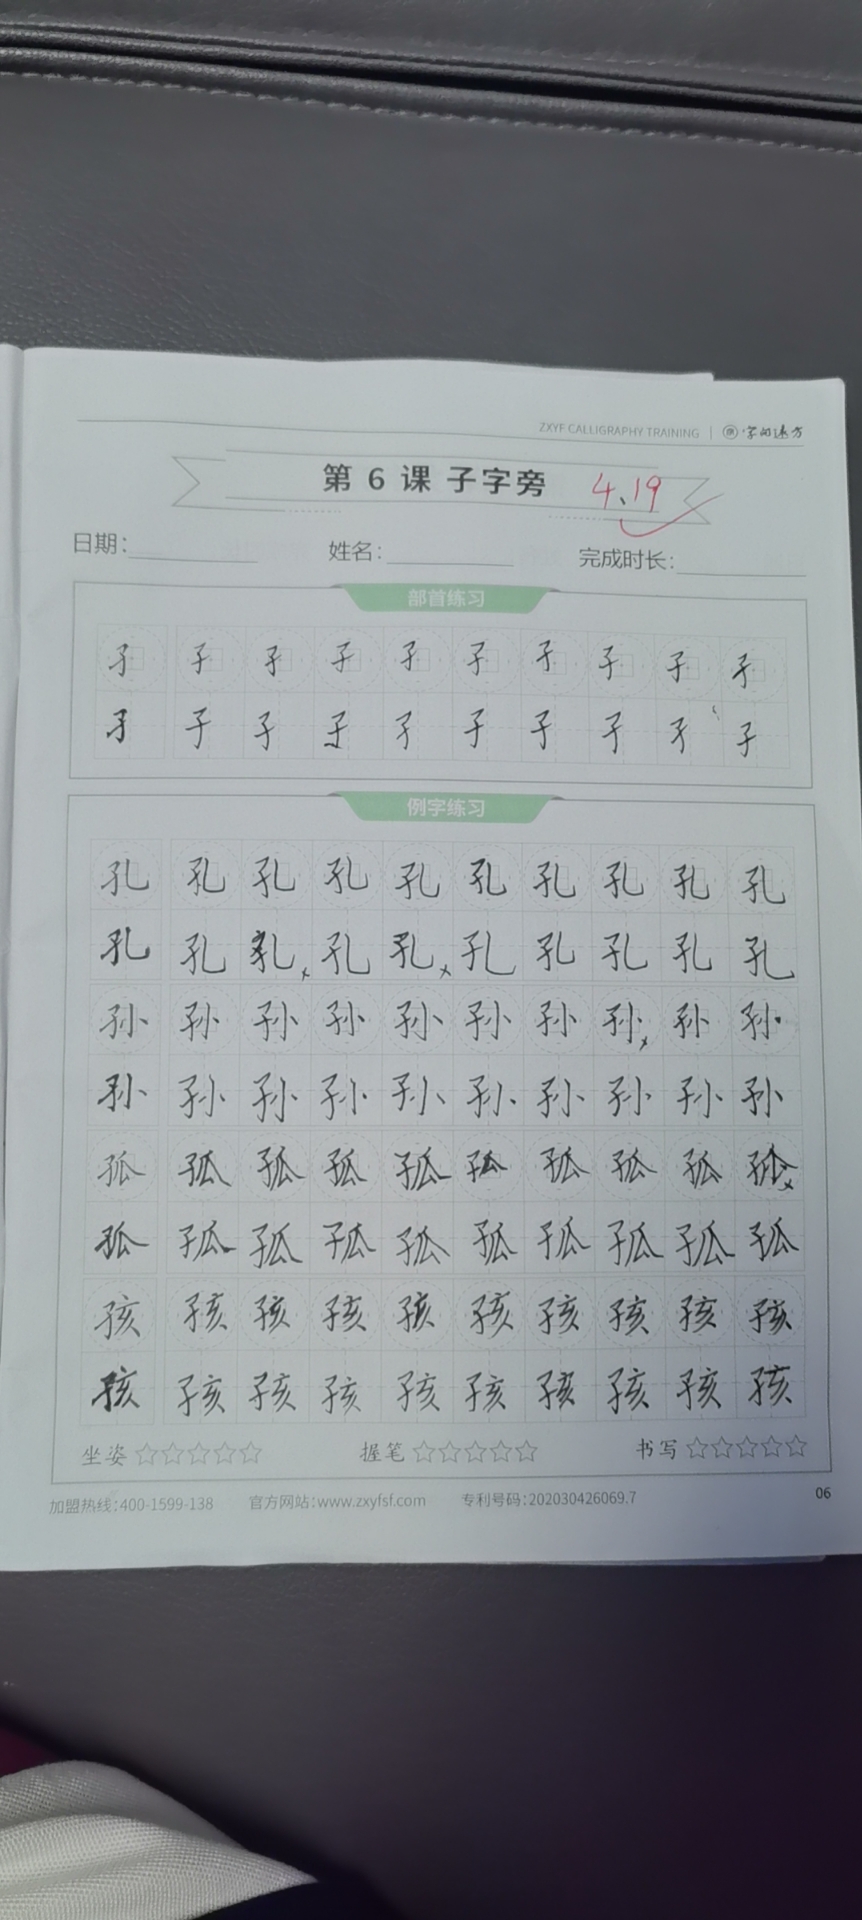 ZXYF CALLIGRAPHY TRAINING | 字的远方
第 6 课 子字旁 4、19
日期: 姓名: 完成时长:
部首练习
孑 孑 孑 孑 孑 孑 孑 孑 孑 孑
孑 孑 孑 孑 孑 孑 孑 孑 孑 孑
例字练习
孔 孔 孔 孔 孔 孔 孔 孔 孔 孔
孔 孔 孔 孔 孔 孔 孔 孔 孔 孔
孙 孙 孙 孙 孙 孙 孙 孙 孙 孙
孙 孙 孙 孙 孙 孙 孙 孙 孙 孙
孤 孤 孤 孤 孤 孤 孤 孤 孤 孤
孤 孤 孤 孤 孤 孤 孤 孤 孤 孤
孩 孩 孩 孩 孩 孩 孩 孩 孩 孩
孩 孩 孩 孩 孩 孩 孩 孩 孩 孩
坐姿 ☆☆☆☆☆ 握笔 ☆☆☆☆☆ 书写 ☆☆☆☆☆
加盟热线:400-1599-138 官方网站:www.zxyfsf.com 专利号码:202030426069.7 06